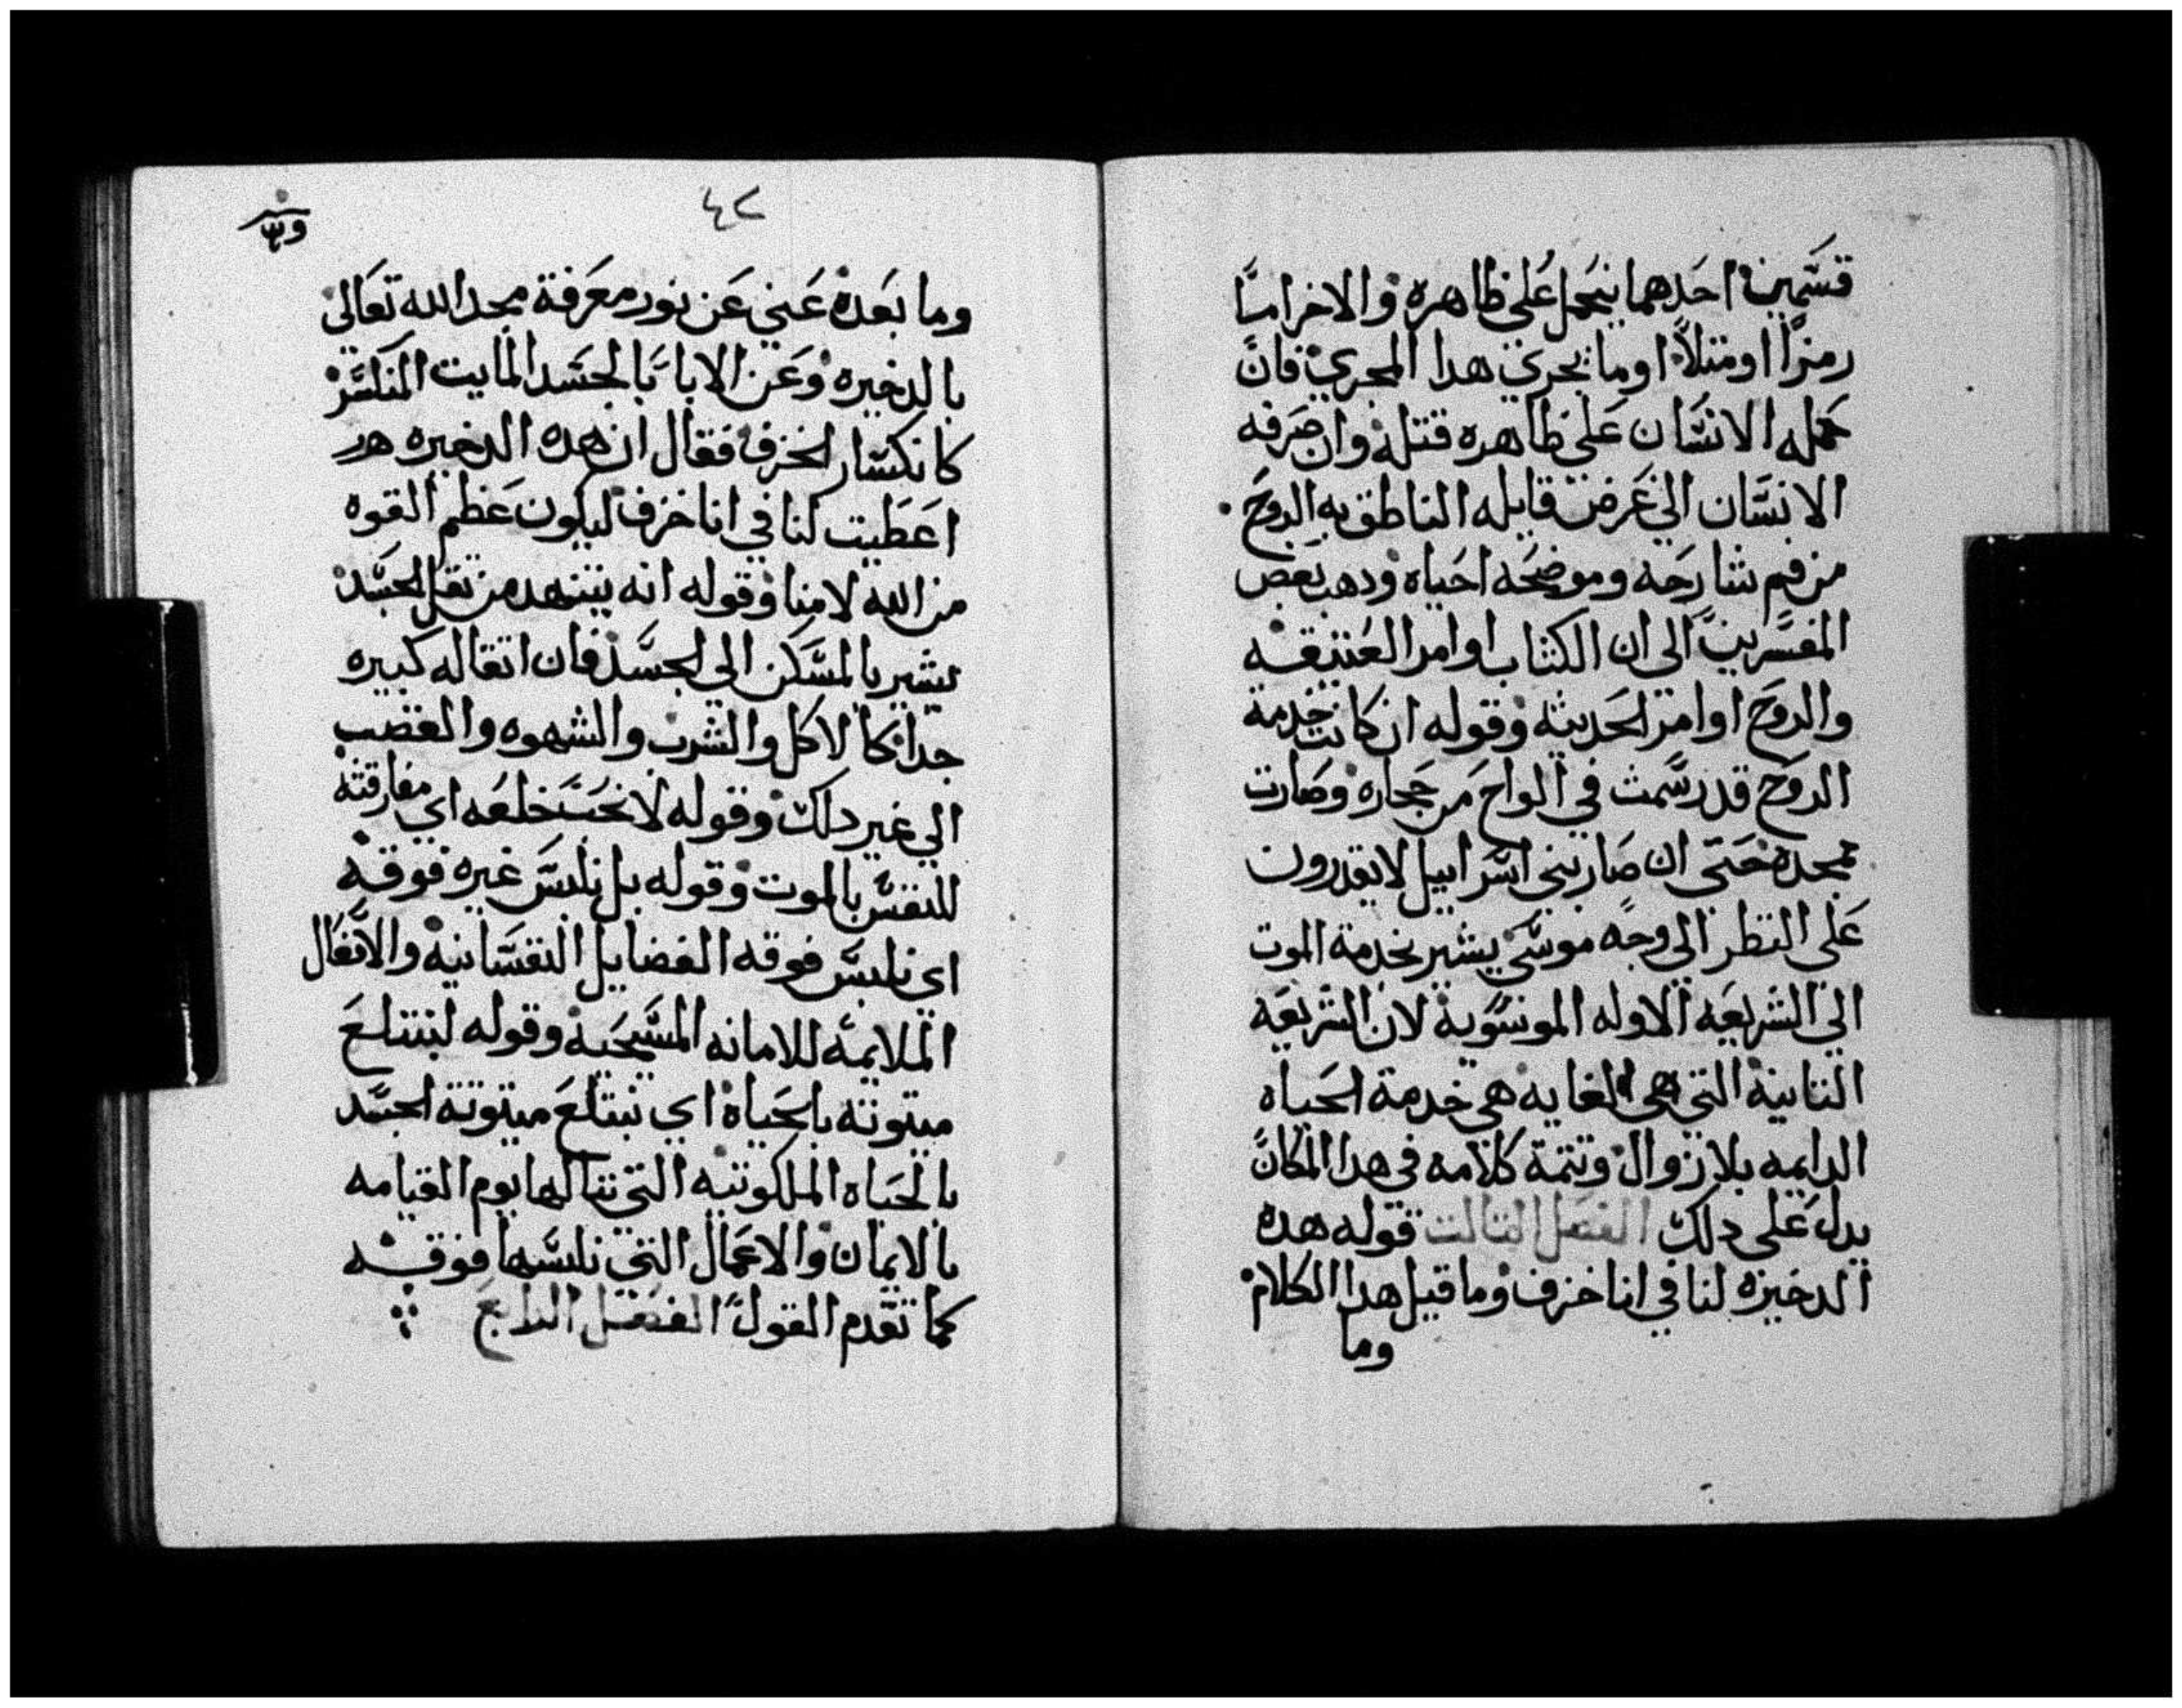 قسمين احدهما يحمل على ظاهره والاخر اما
رمزًا او مثلاً او ما يجري هدا المجري فان
حمله الانسان على ظاهره قتله وان صرفه
الانسان الي غرض قايله الناطق به الروح
من فم شارحه وموضحه احياه ودهب بعض
المفسرين الى ان الكتاب اوامر العتيقه
والروح اوامر الحديثه وقوله ان كانت خدمة
الروح قد رسمت في الواح من حجاره وصارت
ممجده حتى ان صار بني اسرابيل لا يقدرون
على النظر الى وجه موسي يشير بخدمة الموت
الى الشريعه الاوله الموسوية لان الشريعه
التانية التي هي الغايه هي خدمة الحياه
الدايمه بلا زوال وتتمة كلامه في هدا المكان
يدل على دلك الفصل التالت قوله هده
الدخيره لنا في انا خزف وما قبل هدا الكلام
وما
٤٢
وما بعده عني عن نور معرفة مجد الله تعالى
بالدخيره وعن الابا بالجسد المايت المنكسر
كانكسار الخزف فقال ان هده الدخيره هو
اعطيت لنا في انا خزف ليكون عظم القوه
من الله لا منا وقوله انه يتنهد من تقل الجسد
يشير بالمسكن الى الجسد فان اتقاله كبيره
جدا كالاكل والشرب والشهوه والغضب
الي غير دلك وقوله لا نحب خلعه اي مفارقته
للنفس بالموت وقوله بل نلبس غيره فوقه
اي نلبس فوقه الفضايل النفسانيه والافعال
الملايمه للامانه المسيحيه وقوله ليبتلع
ميتوتته بالحياه اي تبتلع ميتوتة الجسد
بالحياه الملكوتيه التي ننالها يوم القيامه
بالايمان والاعمال التي نلبسها فوقه
كما تقدم القول الفصل الرابع